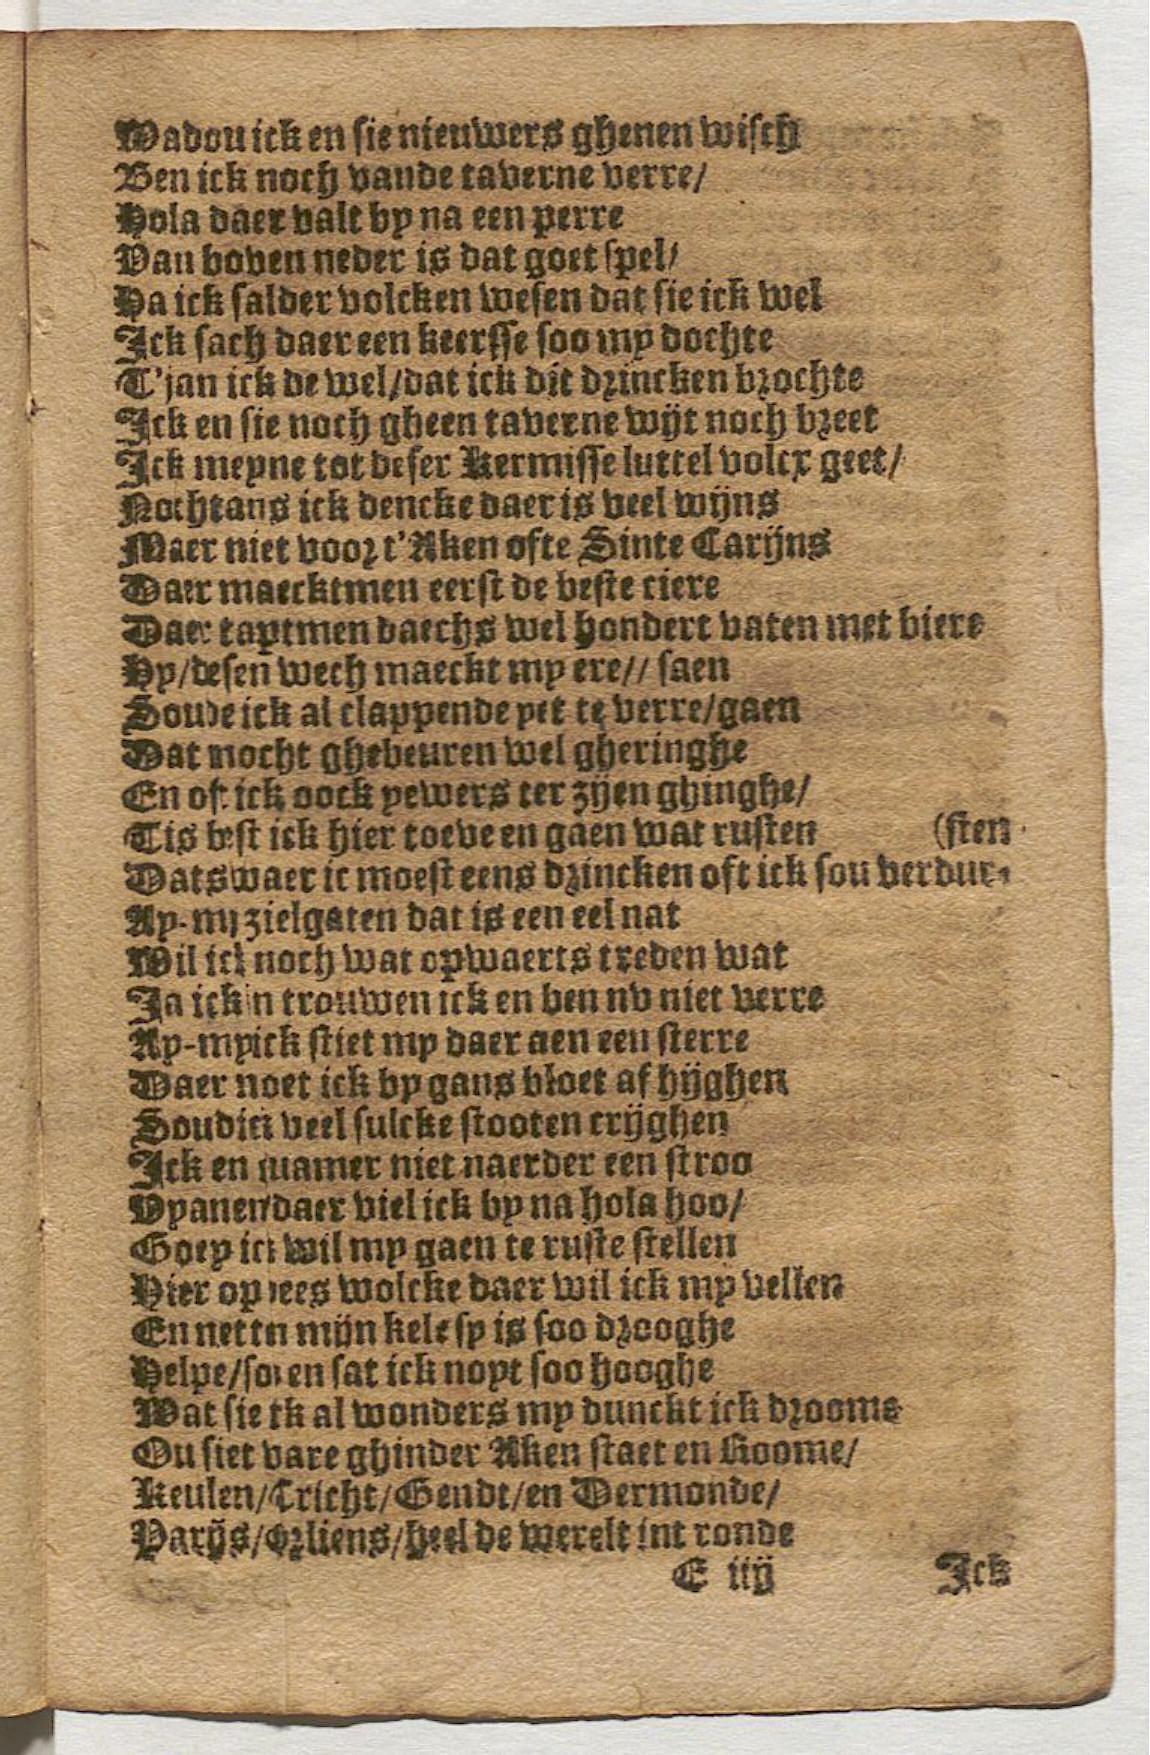 Wadou ick en sie nieuwers ghenen wisch
Ben ick noch vande taverne verre/
Hola daer valt by na een perre
Van boven neder is dat goet spel/
Ha ick salder volcken wesen dat sie ick wel
Ick sach daer een keersse soo my dochte
T'jan ick de wel/dat ick dit drincken brochte
Ick en sie noch gheen taverne wijt noch breet
Ick meyne tot deser Kermisse luttel volcx geet/
Nochtans ick dencke daer is veel wijns
Maer niet voor t'Aken ofte Sinte Carijns
Daer maecktmen eerst de beste ciere
Daer taptmen daechs wel hondert vaten met biere
Hy/desen wech maeckt my ere// saen
Soude ick al clappende yet te verre/gaen
Dat mocht ghebeuren wel gheringhe
En oft ick oock yewers ter zijen ghinghe/
Tis best ick hier toeve en gaen wat rusten (sten
Datswaer ic moest eens drincken oft ick sou verdur-
Ay-my zielgaten dat is een eel nat
Wil ick noch wat opwaerts treden wat
Ja ick in trouwen ick en ben nv niet verre
Ay-myick stiet my daer aen een sterre
Daer noet ick by gans bloet af hijghen
Soudick veel sulcke stooten crijghen
Ick en quamer niet naerder een stroo
Vyanen/daer viel ick by na hola hoo/
Goey ick wil my gaen te ruste stellen
Hier op dees wolcke daer wil ick my vellen
En netten mijn kele sy is soo drooghe
Helpe/so en sat ick noyt soo hooghe
Wat sie ik al wonders my dunckt ick droome
Ou siet vare ghinder Aken staet en Roome/
Keulen/Tricht/Gendt/en Dermonde/
Parijs/Orliens/heel de werelt int ronde
E iiij Ick